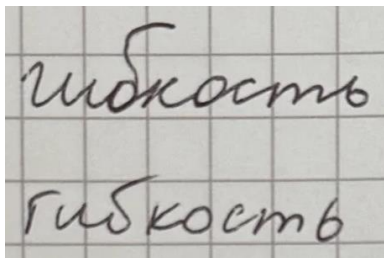 гибкость
гибкость